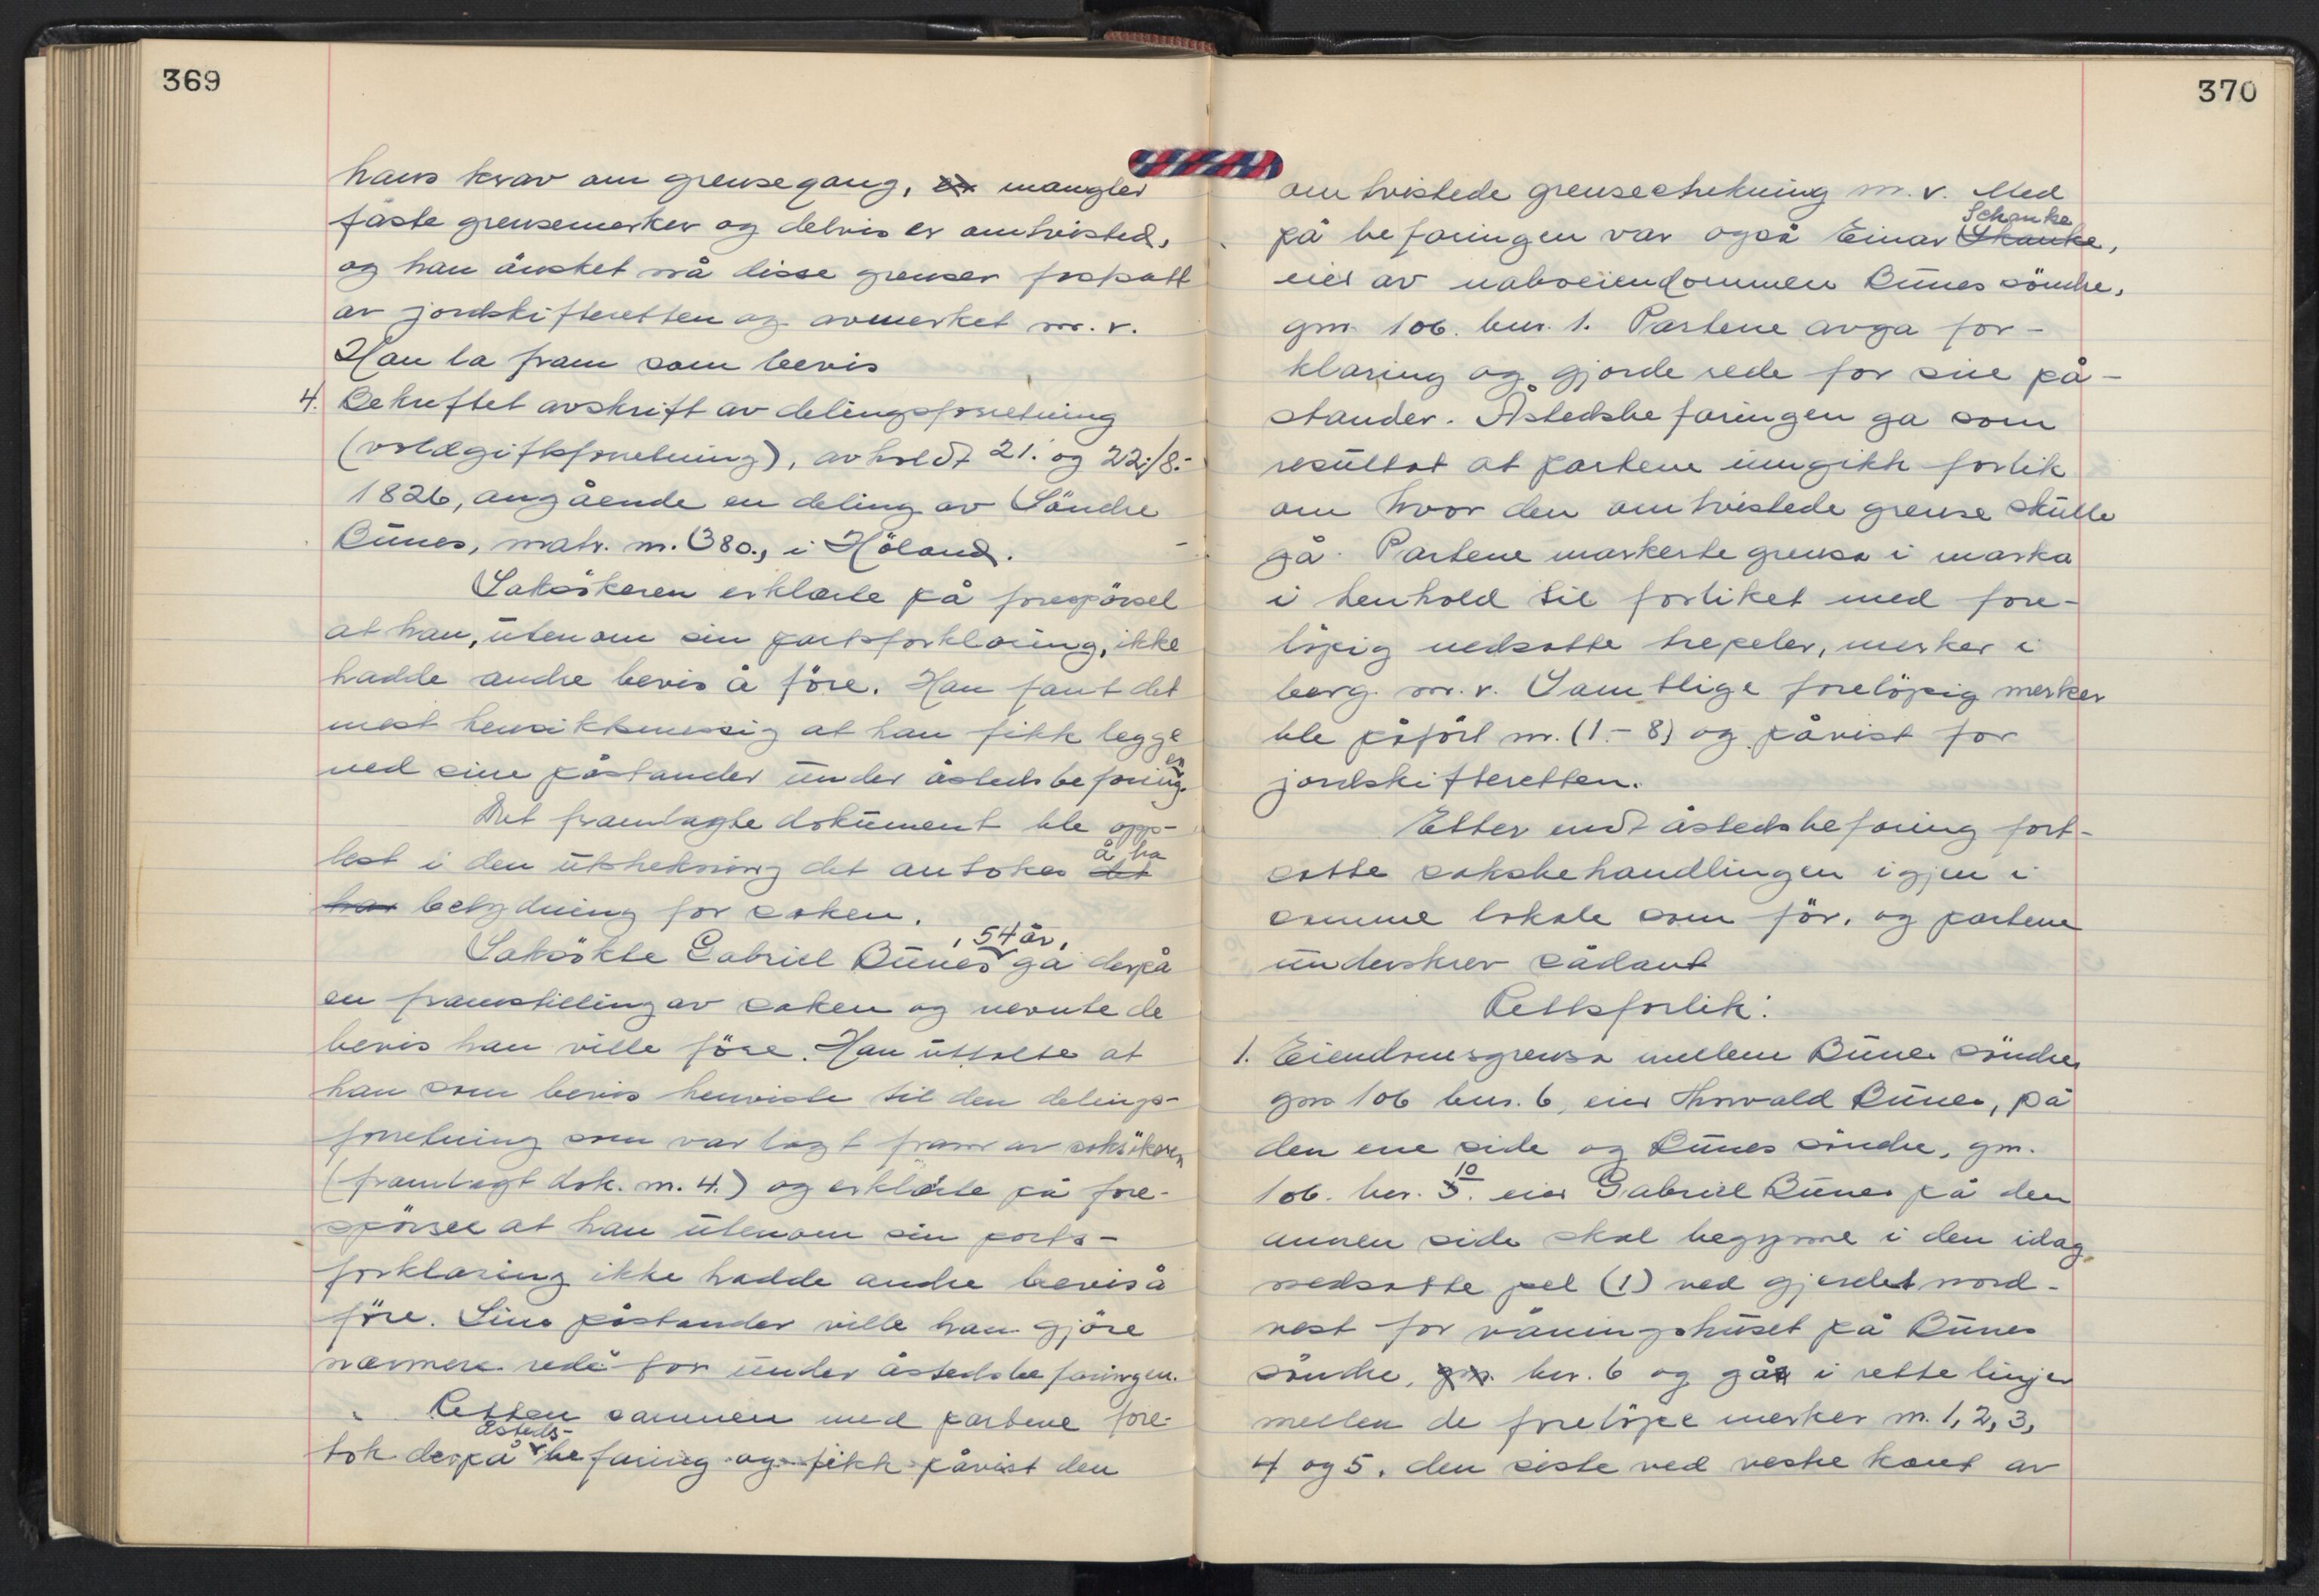 369
hans krav om grensegang, er mangler
faste grensemerker og delvis er omtvisted,
og han ønsket nå disse grenser fastsatt
av jordskifteretten og avmerket m.v.
Han la fram som bevis
4. Bekreftet avskrift av delingsforretning
(voldgiftsforretning), avholdt 21. og 22./8.-
1826, angående en deling av Söndre
Bunes, matr. nr. 380., i Höland.
Saksökeren erklærte på forespörsel
at han, utenom sin partsforklaring, ikke
hadde andre bevis å före. Han fant det
mest hensiktsmessig at han fikk legge
ned sine påstander under åstedsbefaringen.
Det framlagte dokument ble opp-
lest i den utstrekning det antokes det å ha
har betydning for saken.
Saksökte Gabriel Bunes, 54 år, ga derpå
en framstilling av saken og nevnte de
bevis han ville före. Han uttalte at
han som bevis henviste til den delings-
forretning som var lagt fram av saksökeren
(framlagt dok. nr. 4.) og erklærte på fore-
spörsel at han utenom sin parts-
forklaring ikke hadde andre bevis å
före. Sine påstander ville han gjöre
nærmere rede for under åstedsbefaringen.
Retten sammen med partene fore-
tok derpå åsteds-befaring og fikk påvist den
370
omtvistede grensestrekning m.v. Med
på befaringen var også Einar Skanke Schanke,
eier av naboeiendommen Bunes söndre,
gnr. 106. bnr. 1. Partene avga for-
klaring og gjorde rede for sine på-
stander. Åstedsbefaringen ga som
resultat at partene inngikk forlik
om hvor den omtvistede grense skulle
gå. Partene markerte grensa i marka
i henhold til forliket med fore-
löpig nedsatte trepeler, merker i
berg m.v. Samtlige forelöpig merker
ble påfört nr. (1.-8) og påvist for
jordskifteretten.
Etter endt åstedsbefaring fort-
satte saksbehandlingen igjen i
samme lokale som för, og partene
underskrev sådant
Rettsforlik:
1. Eiendomsgrensa mellem Bunes söndre,
gnr 106 bnr. 6, eier Thorvald Bunes, på
den ene side og Bunes söndre, gnr.
106. bnr. 5. 10 eier Gabriel Bunes på den
annen side skal begynne i den idag
nedsatte pel (1) ved gjerdet nord-
vest for våningshuset på Bunes
söndre, gnr. bnr. 6 og går i rette linjer
mellem de forelöpe merker nr. 1, 2, 3,
4 og 5, den siste ved vestre kant av